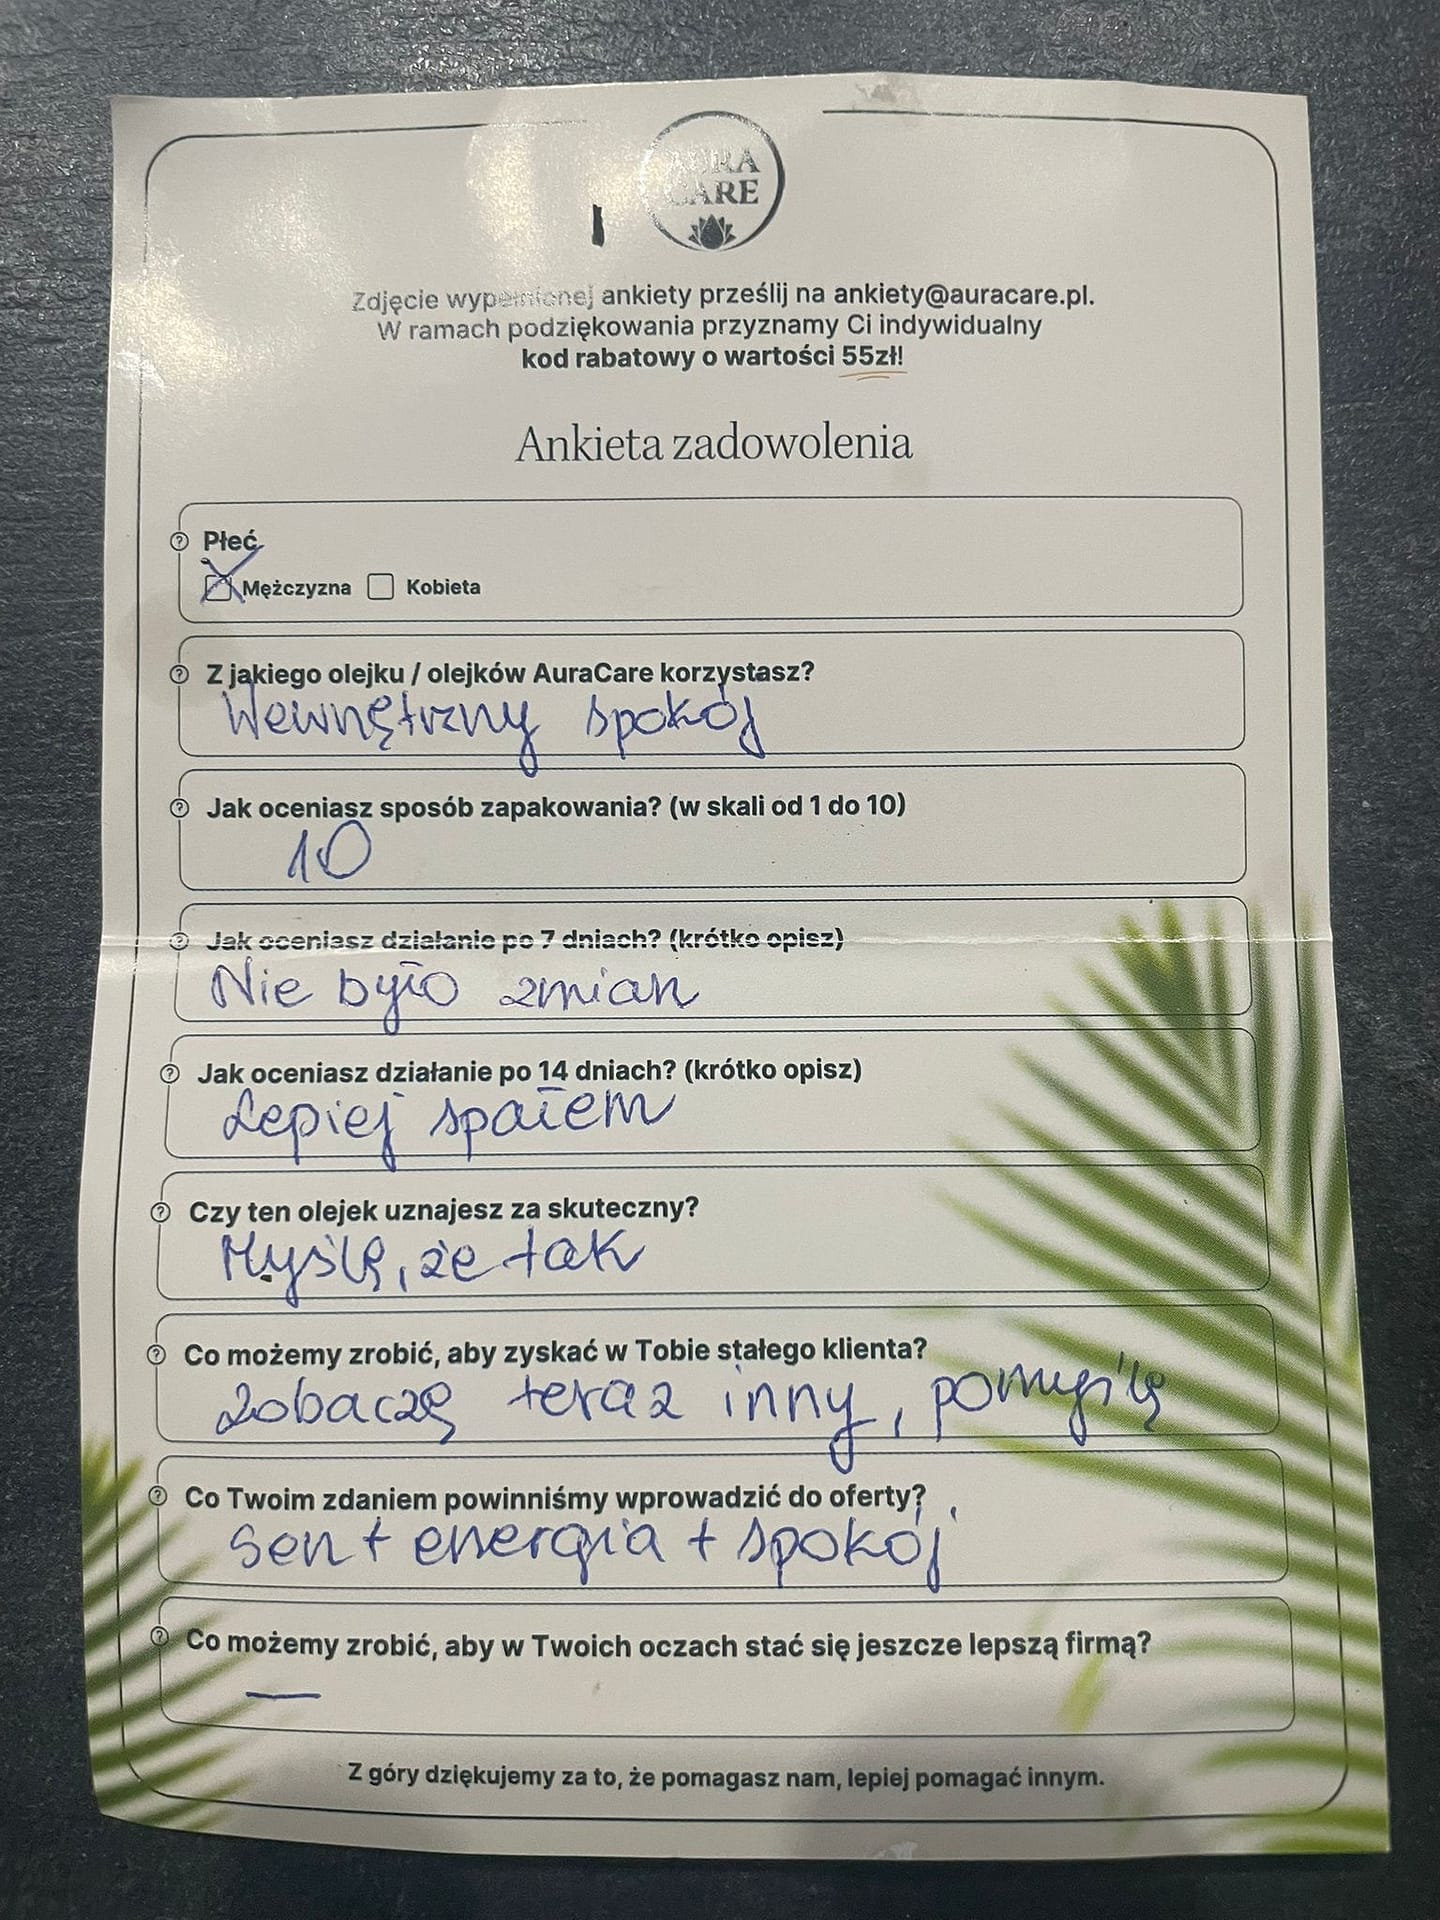 AURA
CARE
Zdjęcie wypełnionej ankiety prześlij na ankiety@auracare.pl.
W ramach podziękowania przyznamy Ci indywidualny
kod rabatowy o wartości 55zł!
Ankieta zadowolenia
Płeć
Mężczyzna Kobieta
Z jakiego olejku / olejków AuraCare korzystasz?
Wewnętrzny spokój
Jak oceniasz sposób zapakowania? (w skali od 1 do 10)
10
Jak oceniasz działanie po 7 dniach? (krótko opisz)
Nie było zmian
Jak oceniasz działanie po 14 dniach? (krótko opisz)
Lepiej spałem
Czy ten olejek uznajesz za skuteczny?
Myślę, że tak
Co możemy zrobić, aby zyskać w Tobie stałego klienta?
Zobaczę teraz inny, pomyślę
Co Twoim zdaniem powinniśmy wprowadzić do oferty?
Sen + energia + spokój
Co możemy zrobić, aby w Twoich oczach stać się jeszcze lepszą firmą?
—
Z góry dziękujemy za to, że pomagasz nam, lepiej pomagać innym.